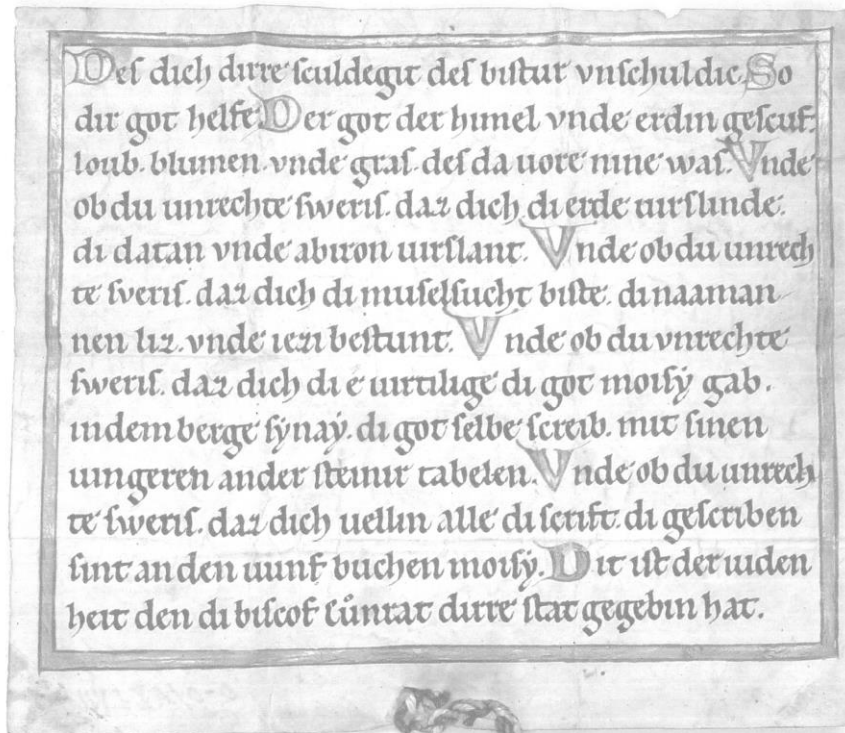 Des dich dirre sculdegit des bistur vnschuldic. So
dir got helfe. Der got der himel vnde erdin gescuf.
loub. blumen. vnde gras. des da uore nine was. Vnde
ob du unrechte sweris. daz dich di erde uirslinde.
di datan vnde abiron uirslant. Vnde ob du unrech
te sveris. daz dich di muselsucht biste. di naaman
nen liz. vnde iezi bestunt. Vnde ob du vnrechte
sweris. daz dich di e uirtilige di got moisy gab.
in dem berge synay. di got selbe screib. mit sinen
uingeren an der steinir tabelen. Vnde ob du unrech
te sweris. daz dich uellin alle di scrift. di gescriben
sint an den uunf buchen moisy. Dit ist der iuden
heit den di biscof Cůnrat dirre stat gegebin hat.